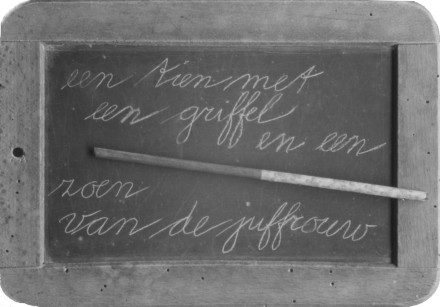 een tien met
een griffel
en een
zoen
van de juffrouw